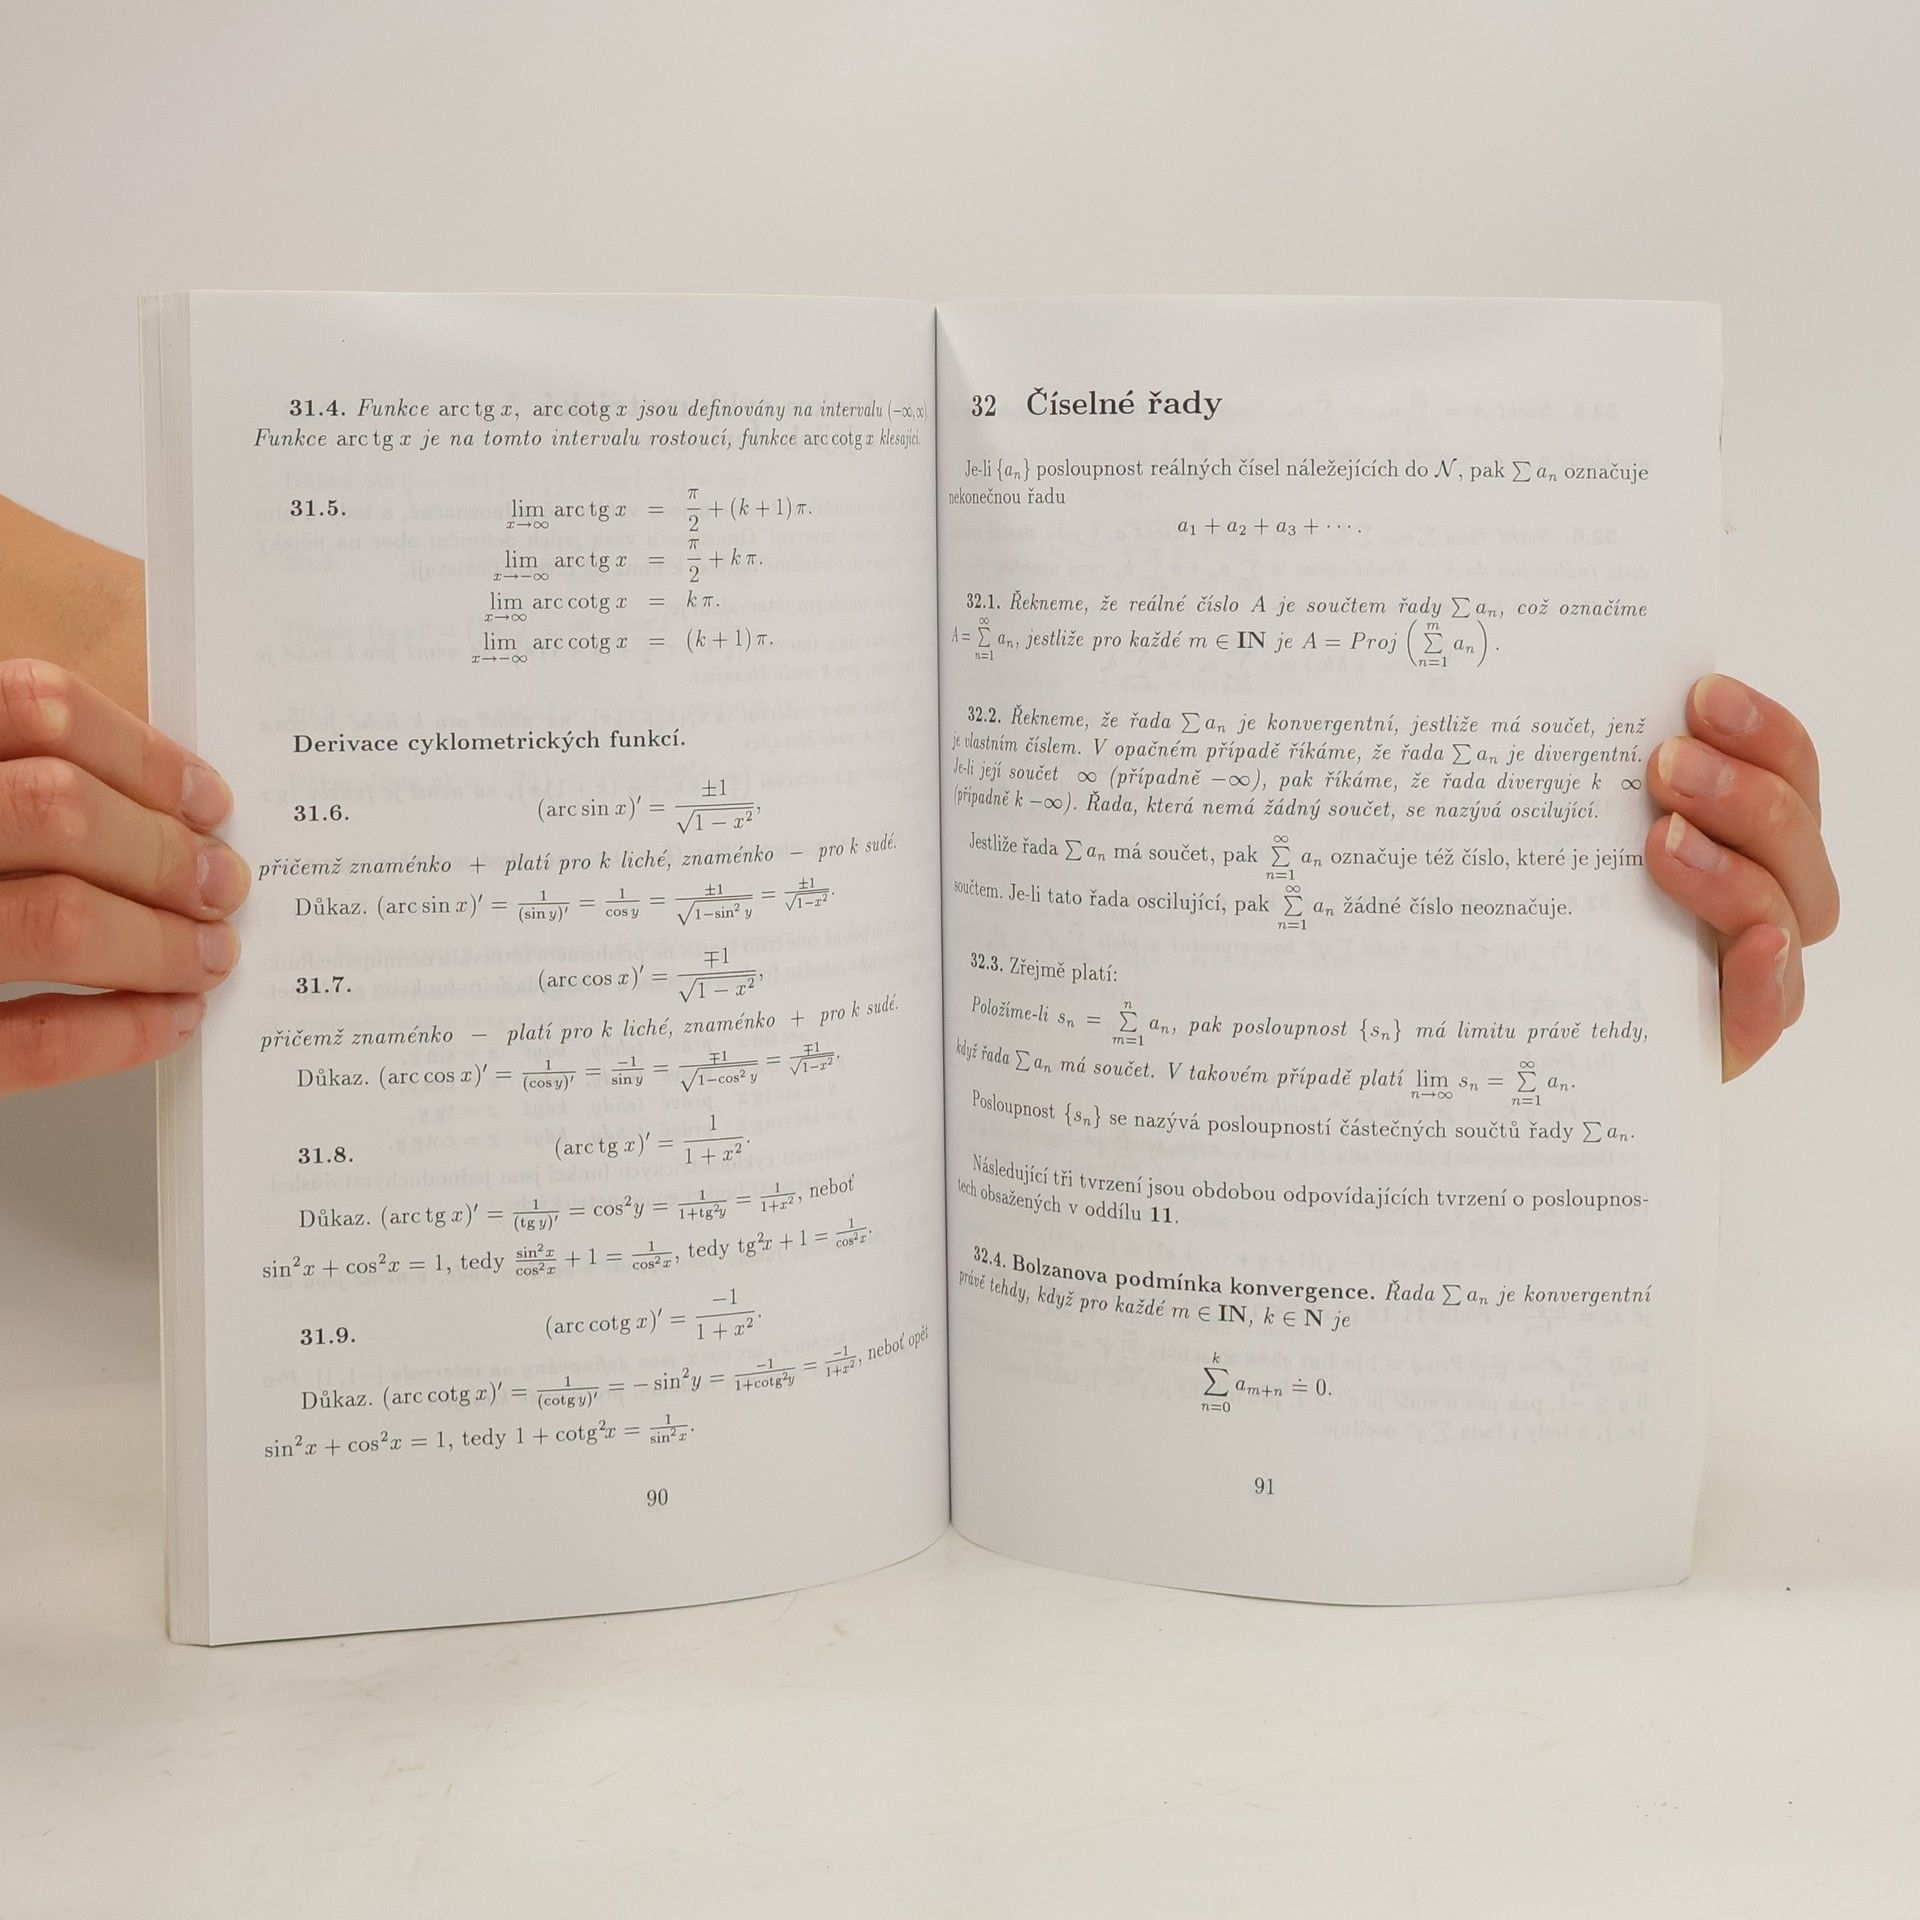 31.4. Funkce arc tg x, arc cotg x jsou definovány na intervalu (−∞, ∞).
Funkce arc tg x je na tomto intervalu rostoucí, funkce arc cotg x klesající.
31.5. lim_{x→∞} arc tg x = π/2 + (k + 1) π.
lim_{x→−∞} arc tg x = π/2 + k π.
lim_{x→∞} arc cotg x = k π.
lim_{x→−∞} arc cotg x = (k + 1) π.
Derivace cyklometrických funkcí.
31.6. (arc sin x)′ = ±1/√(1 − x²),
přičemž znaménko + platí pro k liché, znaménko − pro k sudé.
Důkaz. (arc sin x)′ = 1/(sin y)′ = 1/cos y = ±1/√(1−sin² y) = ±1/√(1−x²).
31.7. (arc cos x)′ = ∓1/√(1 − x²),
přičemž znaménko − platí pro k liché, znaménko + pro k sudé.
Důkaz. (arc cos x)′ = 1/(cos y)′ = −1/sin y = ∓1/√(1−cos² y) = ∓1/√(1−x²).
31.8. (arc tg x)′ = 1/(1 + x²).
Důkaz. (arc tg x)′ = 1/(tg y)′ = cos²y = 1/(1+tg²y) = 1/(1+x²), neboť
sin²x + cos²x = 1, tedy sin²x/cos²x + 1 = 1/cos²x, tedy tg²x + 1 = 1/cos²x.
31.9. (arc cotg x)′ = −1/(1 + x²).
Důkaz. (arc cotg x)′ = 1/(cotg y)′ = − sin²y = −1/(1+cotg²y) = −1/(1+x²), neboť opět
sin²x + cos²x = 1, tedy 1 + cotg²x = 1/sin²x.
90
32 Číselné řady
Je-li {aₙ} posloupnost reálných čísel náležejících do 𝒩, pak ∑ aₙ označuje
nekonečnou řadu
a₁ + a₂ + a₃ + ⋯.
32.1. Řekneme, že reálné číslo A je součtem řady ∑ aₙ, což označíme
A = ∑_{n=1}^{∞} aₙ, jestliže pro každé m ∈ IN je A = Proj (∑_{n=1}^{m} aₙ).
32.2. Řekneme, že řada ∑ aₙ je konvergentní, jestliže má součet, jenž
je vlastním číslem. V opačném případě říkáme, že řada ∑ aₙ je divergentní.
Je-li její součet ∞ (případně −∞), pak říkáme, že řada diverguje k ∞
(případně k −∞). Řada, která nemá žádný součet, se nazývá oscilující.
Jestliže řada ∑ aₙ má součet, pak ∑_{n=1}^{∞} aₙ označuje též číslo, které je jejím
součtem. Je-li tato řada oscilující, pak ∑_{n=1}^{∞} aₙ žádné číslo neoznačuje.
32.3. Zřejmě platí:
Položíme-li sₙ = ∑_{m=1}^{n} aₙ, pak posloupnost {sₙ} má limitu právě tehdy,
když řada ∑ aₙ má součet. V takovém případě platí lim_{n→∞} sₙ = ∑_{n=1}^{∞} aₙ.
Posloupnost {sₙ} se nazývá posloupností částečných součtů řady ∑ aₙ.
Následující tři tvrzení jsou obdobou odpovídajících tvrzení o posloupnos-
tech obsažených v oddílu 11.
32.4. Bolzanova podmínka konvergence. Řada ∑ aₙ je konvergentní
právě tehdy, když pro každé m ∈ IN, k ∈ N je
∑_{n=0}^{k} a_{m+n} ≐ 0.
91